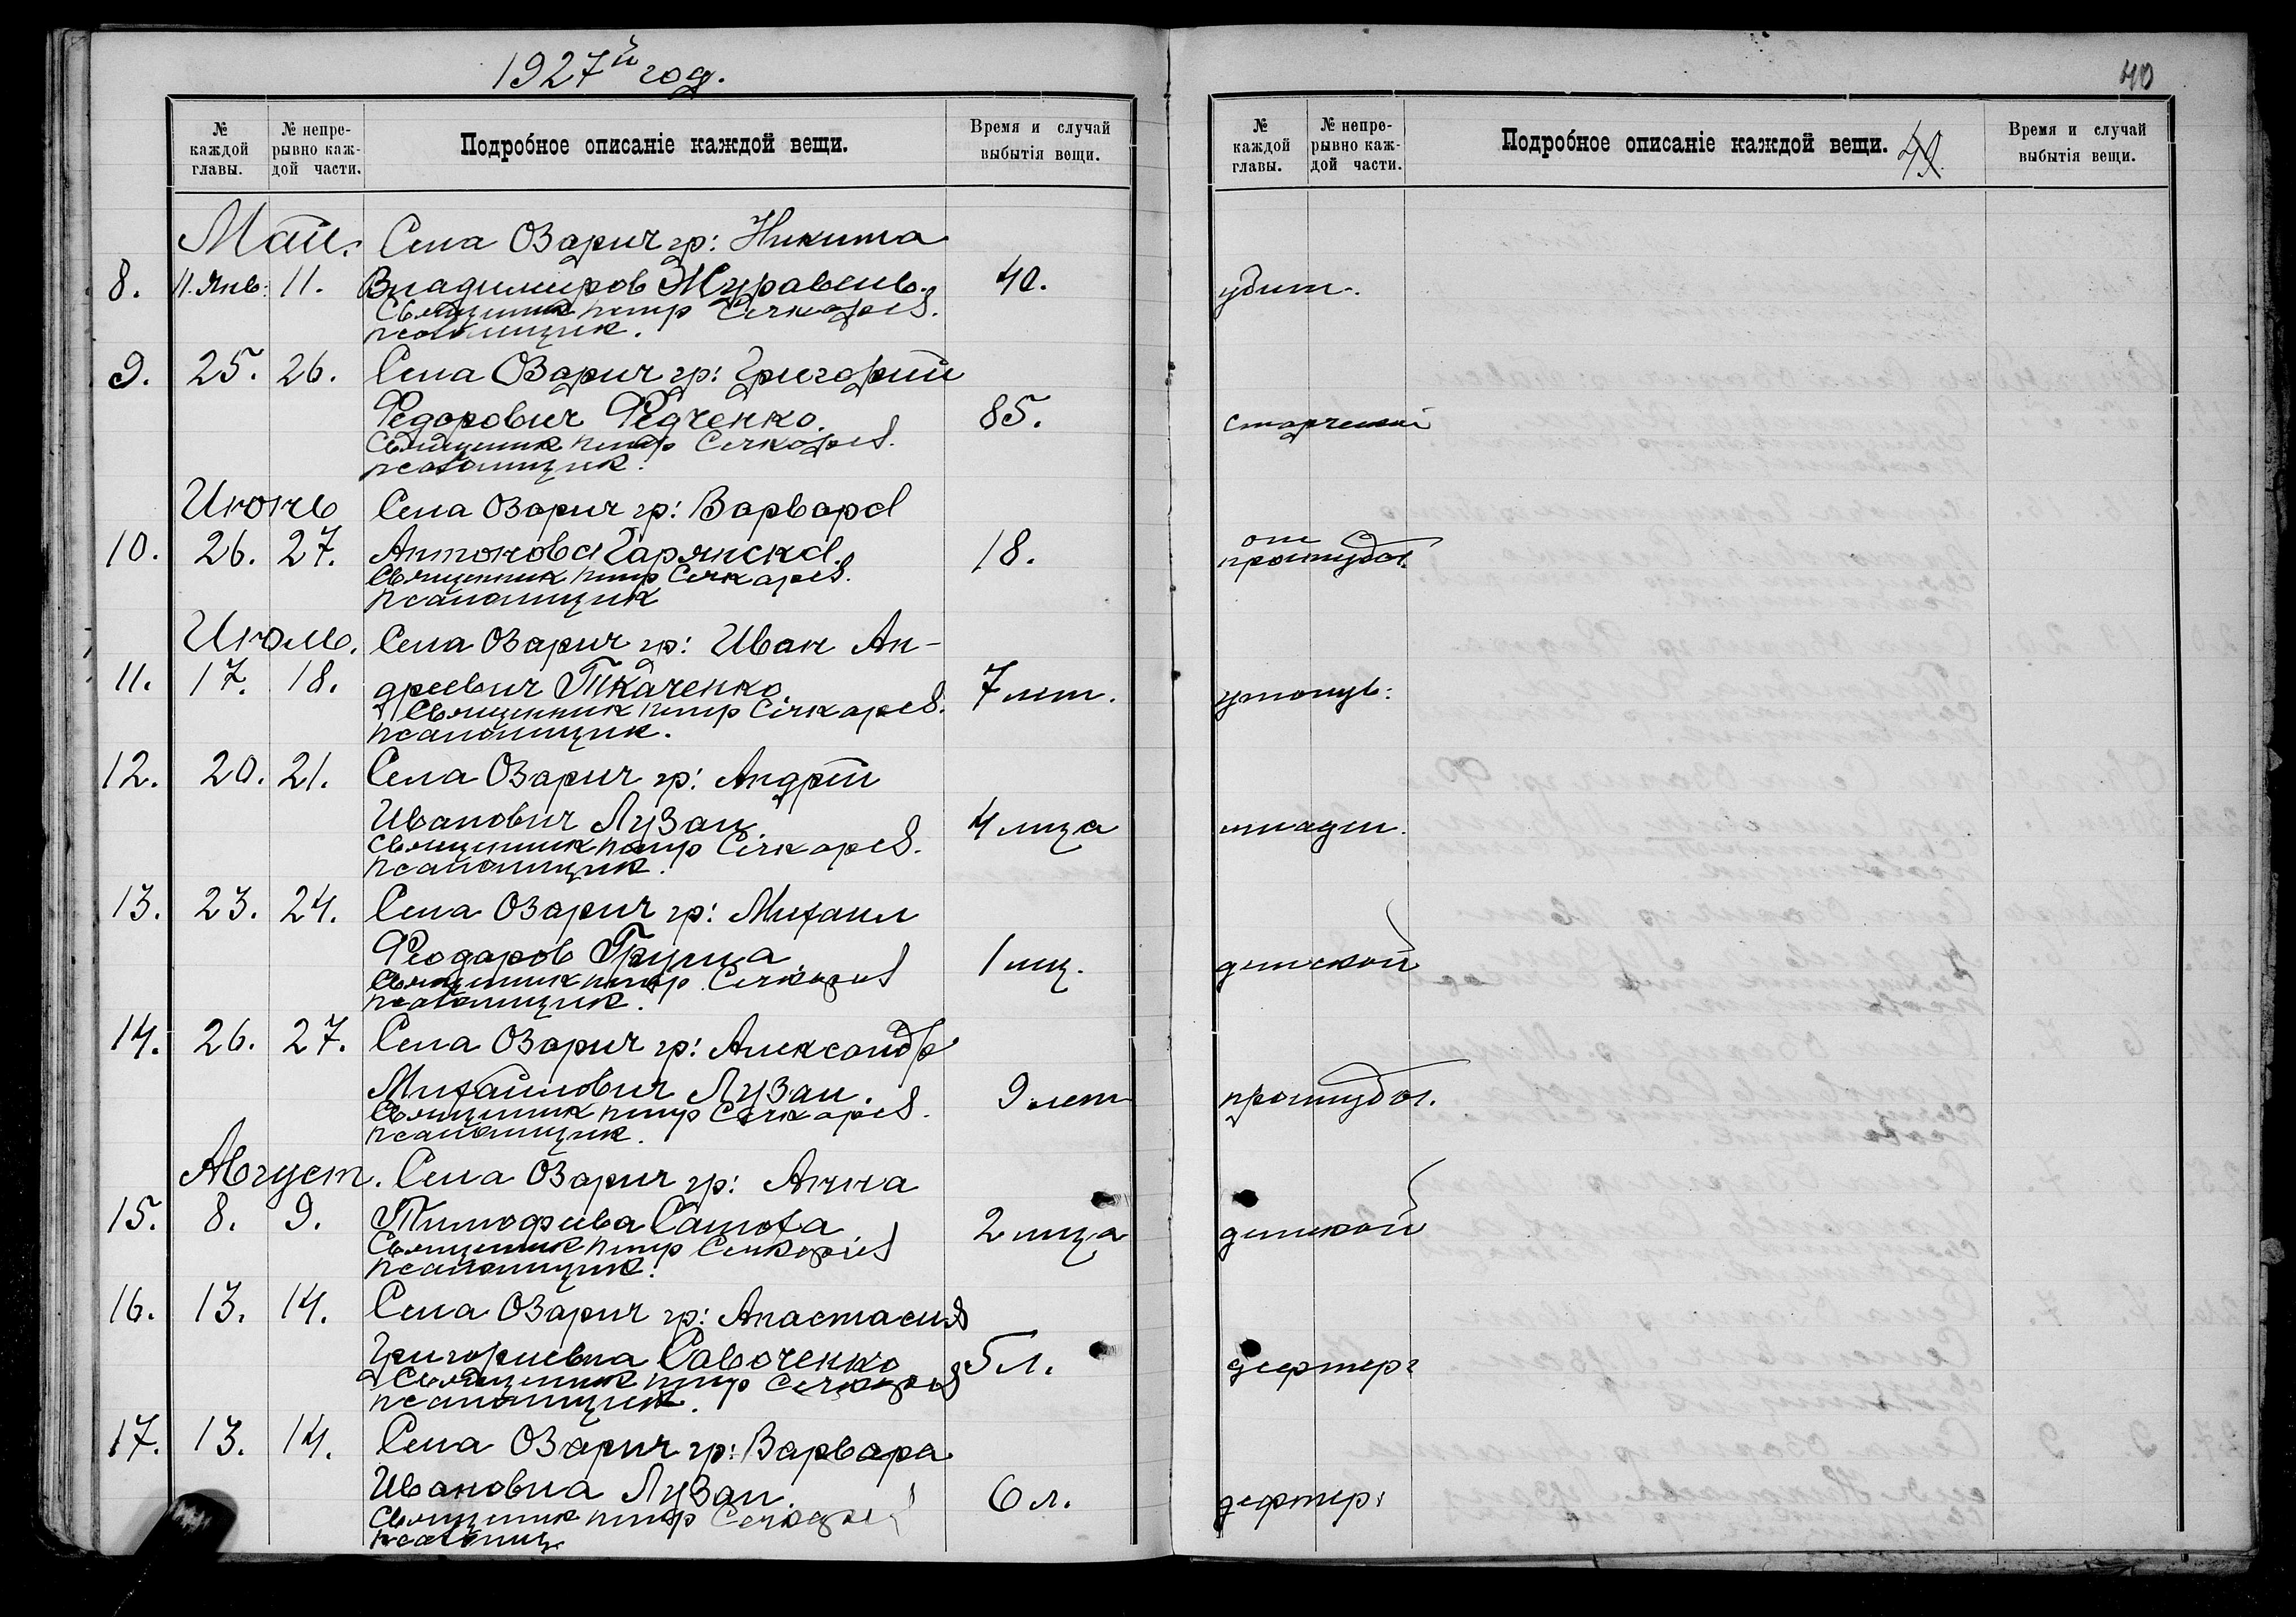 1927й год.
40
№ каждой главы.
№ непре-рывно каж-дой части.
Подробное описаніе каждой вещи.
Время и случай выбытія вещи.
№ каждой главы.
№ непре-рывно каж-дой части.
Подробное описаніе каждой вещи. 40
Время и случай выбытія вещи.
Май. Села Озарич гр: Никита
8. 11. Янв: 11. Владимиров Журавель. 40. убит.
Священник Петр
псаломщик.
9. 25. 26. Села Озарич гр: Григорий
Федорович Федченко. 85. старческой
Священник Петр
псаломщик.
Июнь Села Озарич гр: Варвара
10. 26. 27. Антонова Гарянска. 18. от простудн.
Священник Петр
псаломщик
Июль. Села Озарич гр: Иван Ан-
11. 17. 18. дреевич Ткаченко. 7 лет. утонув:
Священник Петр
псаломщик.
12. 20. 21. Села Озарич гр: Андрей
Иванович Лузан 4 мца младен.
Священник Петр
псаломщик.
13. 23. 24. Села Озарич гр: Михаил
Феодоров Груша 1 мц. детской
Священник Петр
псаломщик.
14. 26. 27. Села Озарич гр: Александр
Михайлович Лузан. 9 лет простудн.
Священник Петр
псаломщик.
Август. Села Озарич гр: Анна
15. 8. 9. Тимофеева Сатоха 2 мца детской
Священник Петр
псаломщик.
16. 13. 14. Села Озарич гр: Анастасия
Григориевна Савоченко 5 л. дефтер:
Священник Петр
псаломщик.
17. 13. 14. Села Озарич гр: Варвара
Ивановна Лузан. 6 л. дефтер:
Священник Петр
псаломщ